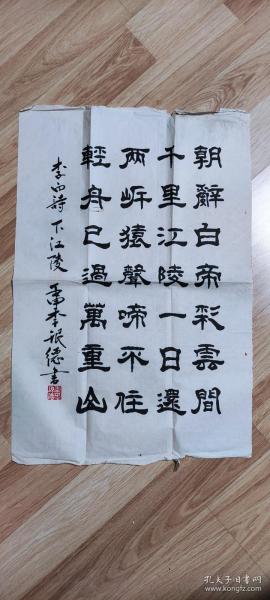 朝辭白帝彩雲間
千里江陵一日還
兩岍猿聲啼不住
輕舟已過萬重山
李白詩下江陵 壬申季 德書
孔夫子旧书网